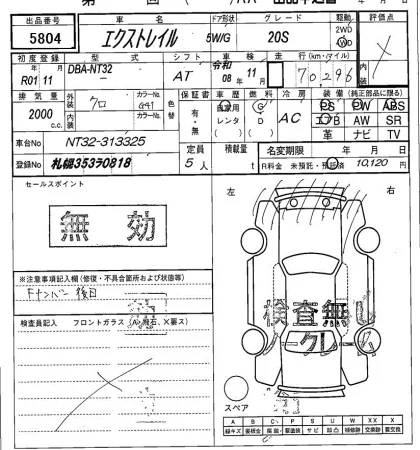 出品番号 車名 ドア形状 グレード 駆動 評価点
5804 エクストレイル 5W/G 20S 2WD WD
初度登録 型式 シフト 車検 走行(km・マイル) 内装
R01 11 DBA-NT32 AT 令和 08 11 70,296
年 月
排気量 外装 カラーNo. 色替 保証書 車歴 燃料 冷房 装備(純正部品に限る)
2000 c.c. クロ G41 有・無 自家用 G AC PS PW ABS
内装 カラーNo. レンタ D エアB AW SR
革 ナビ TV
車台No NT32-313325 定員 積載量 名変期限 年 月 日
登録No 札幌353ヲ0818 5人 t R料金 未預託・預託済 10,120円
セールスポイント
無効
※注意事項記入欄(修復・不具合箇所および状態等)
Fナンバー後日
検査員記入 フロントガラス(A、飛石、X要ス)
左 右
検査無し
ークレーム
スペア
A B C P S U W XX X